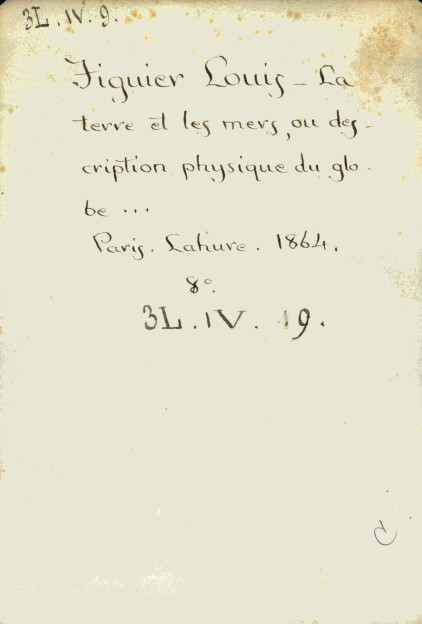 3L. IV. 9.
Figuier Louis - La
terre et les mers, ou des-
cription physique du glo-
be ...
Paris. Lahure. 1864.
8°.
3L. IV. 9.